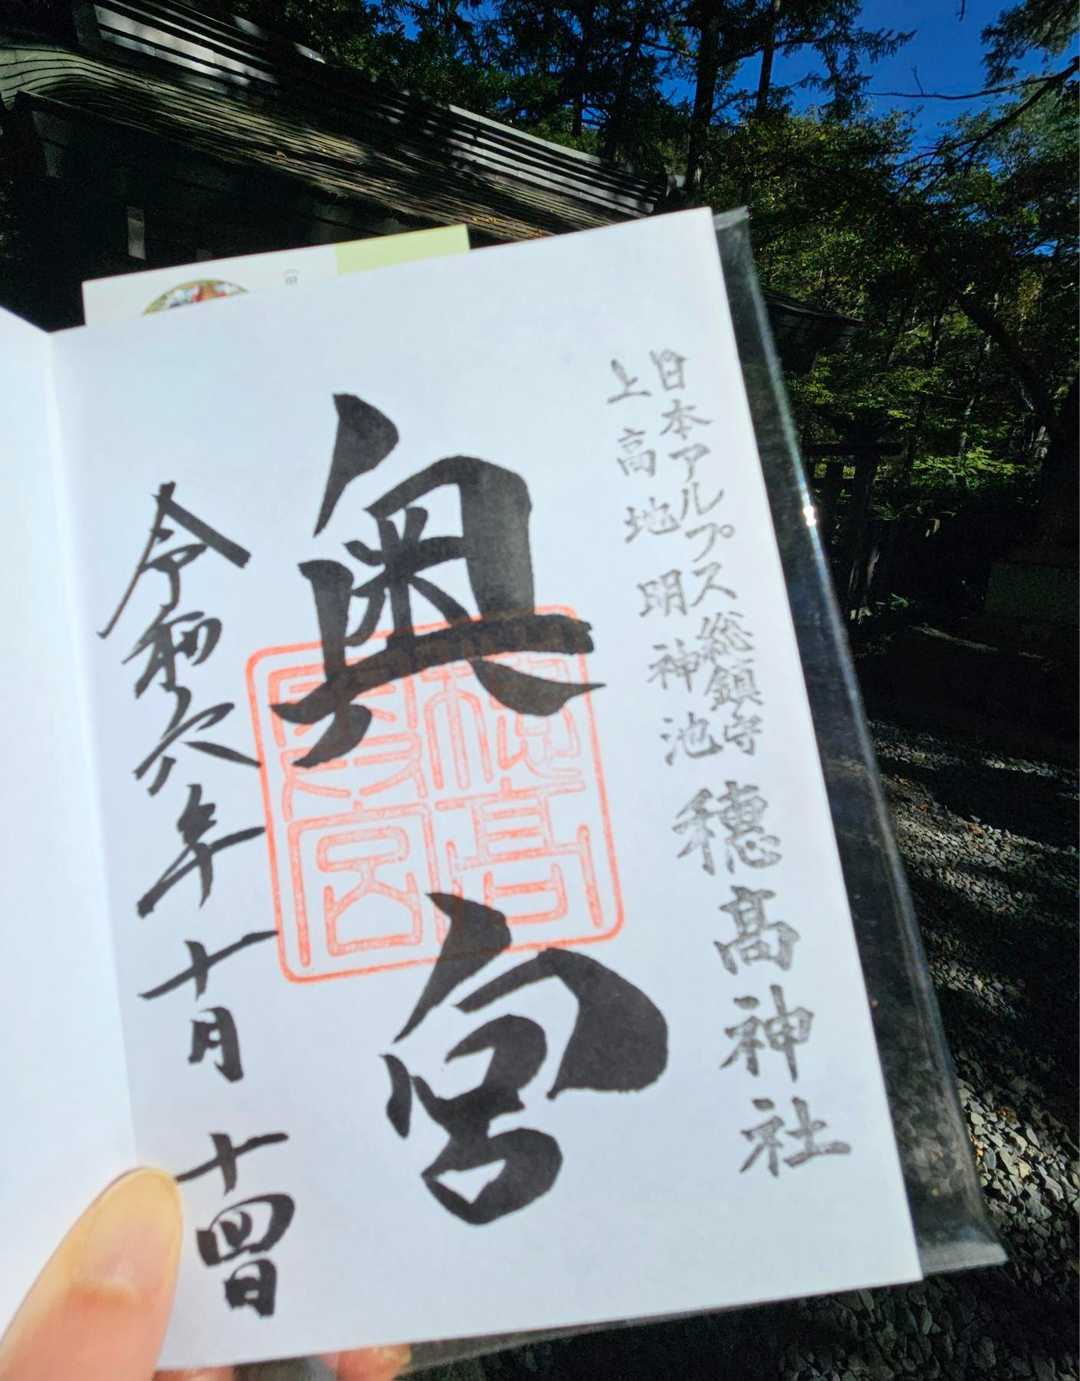 日本アルプス総鎮守
上高地 明神池 穂髙神社
奥宮
穂髙
奥宮
令和六年十月十四日